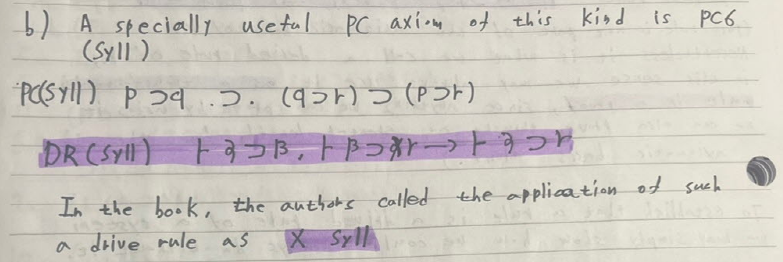 b) A specially useful PC axiom of this kind is PC6
(Syll)
PC(Syll) p ⊃ q .⊃. (q ⊃ r) ⊃ (p ⊃ r)
DR (Syll) ⊢ ∂ ⊃ β, ⊢ β ⊃ r → ⊢ ∂ ⊃ r
In the book, the authors called the application of such
a drive rule as X Syll